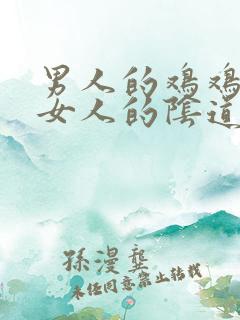 男人的鸡鸡
女人的陰道
孫漫龔
未经同意禁止转载